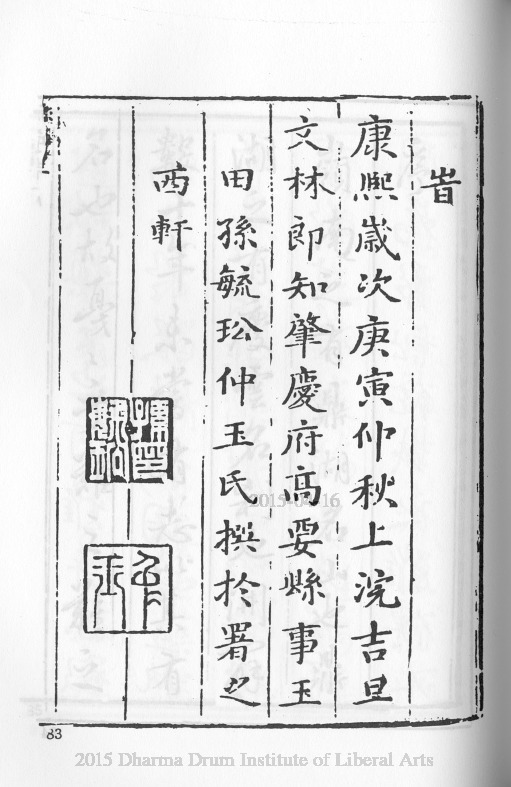 旹
康熈歲次庚寅仲秋上浣吉旦
文林郎知肇慶府高要縣事玉
田孫毓玜仲玉氏撰於署之
西軒
仲玉
2015-04-16
83
2015 Dharma Drum Institute of Liberal Arts